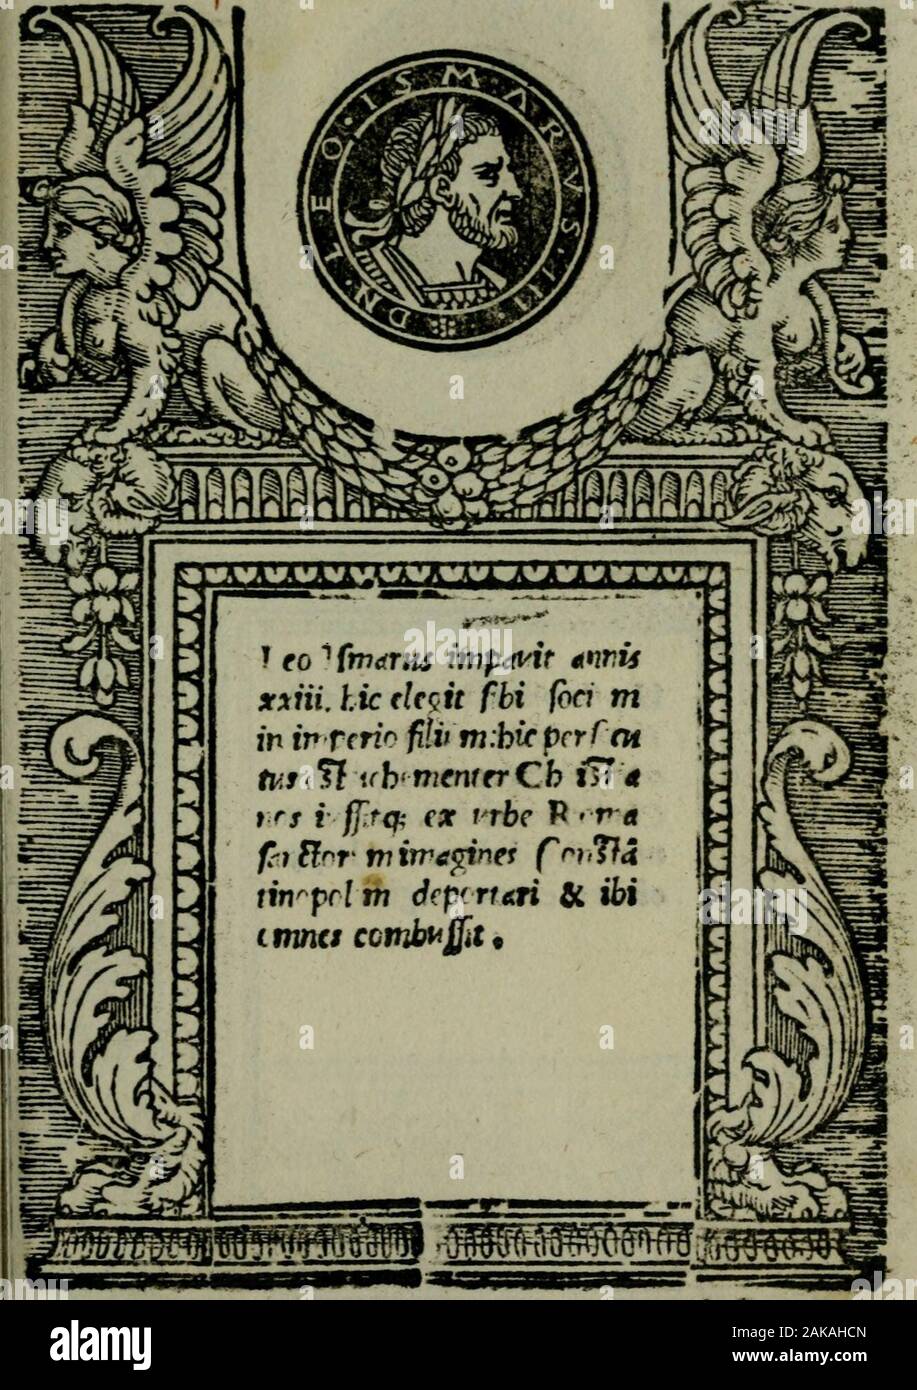 D N LEO·ISMARVS·III
Leo Ismarus impavit annis
xxiii. hic elegit sibi soci m
in imperio filiu m:hic persecu
tus est vehementer Christia
nos iussitq; ex vrbe Roma
sanctor m imagines Constā
tinopol m deportari & ibi
omnes combussit.
alamy
Image ID: 2AKAHCN
www.alamy.com